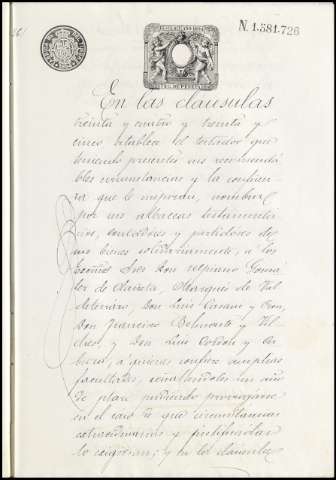 N. 1.581.726
En las clausulas
treinta y cuatro y treinta y
cinco establece el testador que
teniendo presentes sus recomenda-
bles circunstancias y la confian-
za que le inspiran, nombra
por sus albaceas testamenta-
rios, contadores y partidores de
sus bienes solidariamente, a los
Señores Don
de Marques de Val-
deterrazo, Don Luis y
Don Francisco Belmonte y Vil-
ches, y Don Luis Cordón y
a quienes confiere amplias
facultades, señalandoles un año
de plazo pudiendo prorrogarse
en el caso de que circunstancias
extraordinarias y justificadas
lo exigieran; y en la clausula